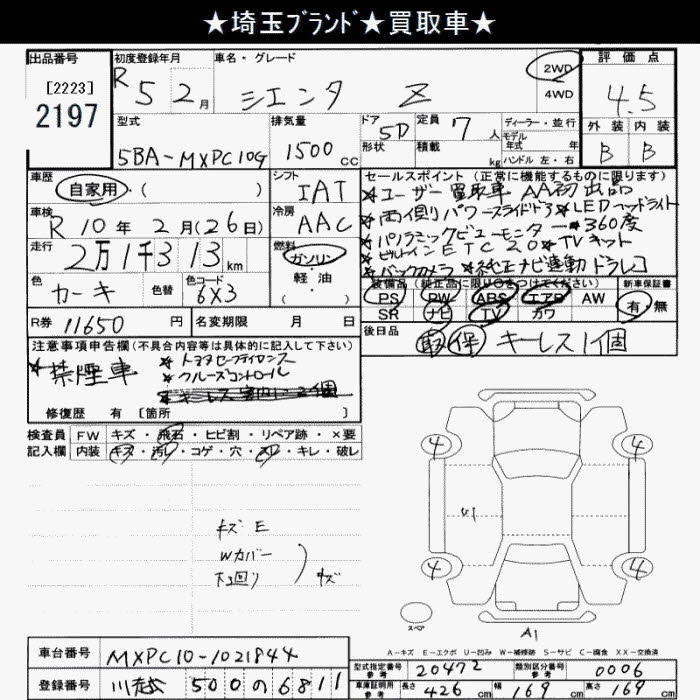 ★埼玉ﾌﾞﾗﾝﾄﾞ★買取車★
出品番号
[2223]
2197
初度登録年月
R 5 2月
車名・グレード
シエンタ Z
2WD
4WD
評価点
4.5
外装 内装
B B
型式
5BA-MXPC10G
排気量
1500cc
ドア 形状
5D
定員 7人
積載 kg
ディーラー・並行
モデル年式 年式
ハンドル 左・右
車歴
自家用・( )
シフト
IAT
セールスポイント (正常に機能するものに限ります)
★ユーザー買取車 AA初出品
★両側パワースライドドア★LEDヘッドライト
★パノラミックビューモニター★360度
★ビルトインETC2.0★TVキット
★バックカメラ★純正ナビ連動ドラレコ
車検
R 10年 2月(26日)
冷房
AAC
走行
2万1千313km
燃料
ガソリン
軽油
( )
色
カーキ
色替
色コード
6X3
装備品 (純正品に限り○をつけてください)
PS PW ABS エアB AW
SR ナビ TV カワ
新車保証書
有 無
R券 11650円
名変期限 月 日
後日品
取 保 キーレス1個
注意事項申告欄(不具合内容等は具体的に記入して下さい)
★禁煙車
★トヨタセーフティセンス
★クルーズコントロール
★キーレス室内に2個
修復歴 有 [箇所 ]
検査員記入欄
FW キズ・飛石・ヒビ割・リペア跡・×要
内装 キズ・汚レ・コゲ・穴・スレ・キレ・破レ
キズ E
Wカバー
下回り
キズ
4 4
U1
4 4
スペア
A1
A-キズ E-エクボ U-凹み W-補修跡 S-サビ C-腐食 XX-交換済
車台番号
MXPC10-1021844
登録番号
川越 500 の 6811
型式指定番号 参考
20472
類別区分番号 参考
0006
車庫証明用 参考
長さ 426cm 幅 169cm 高さ 169cm